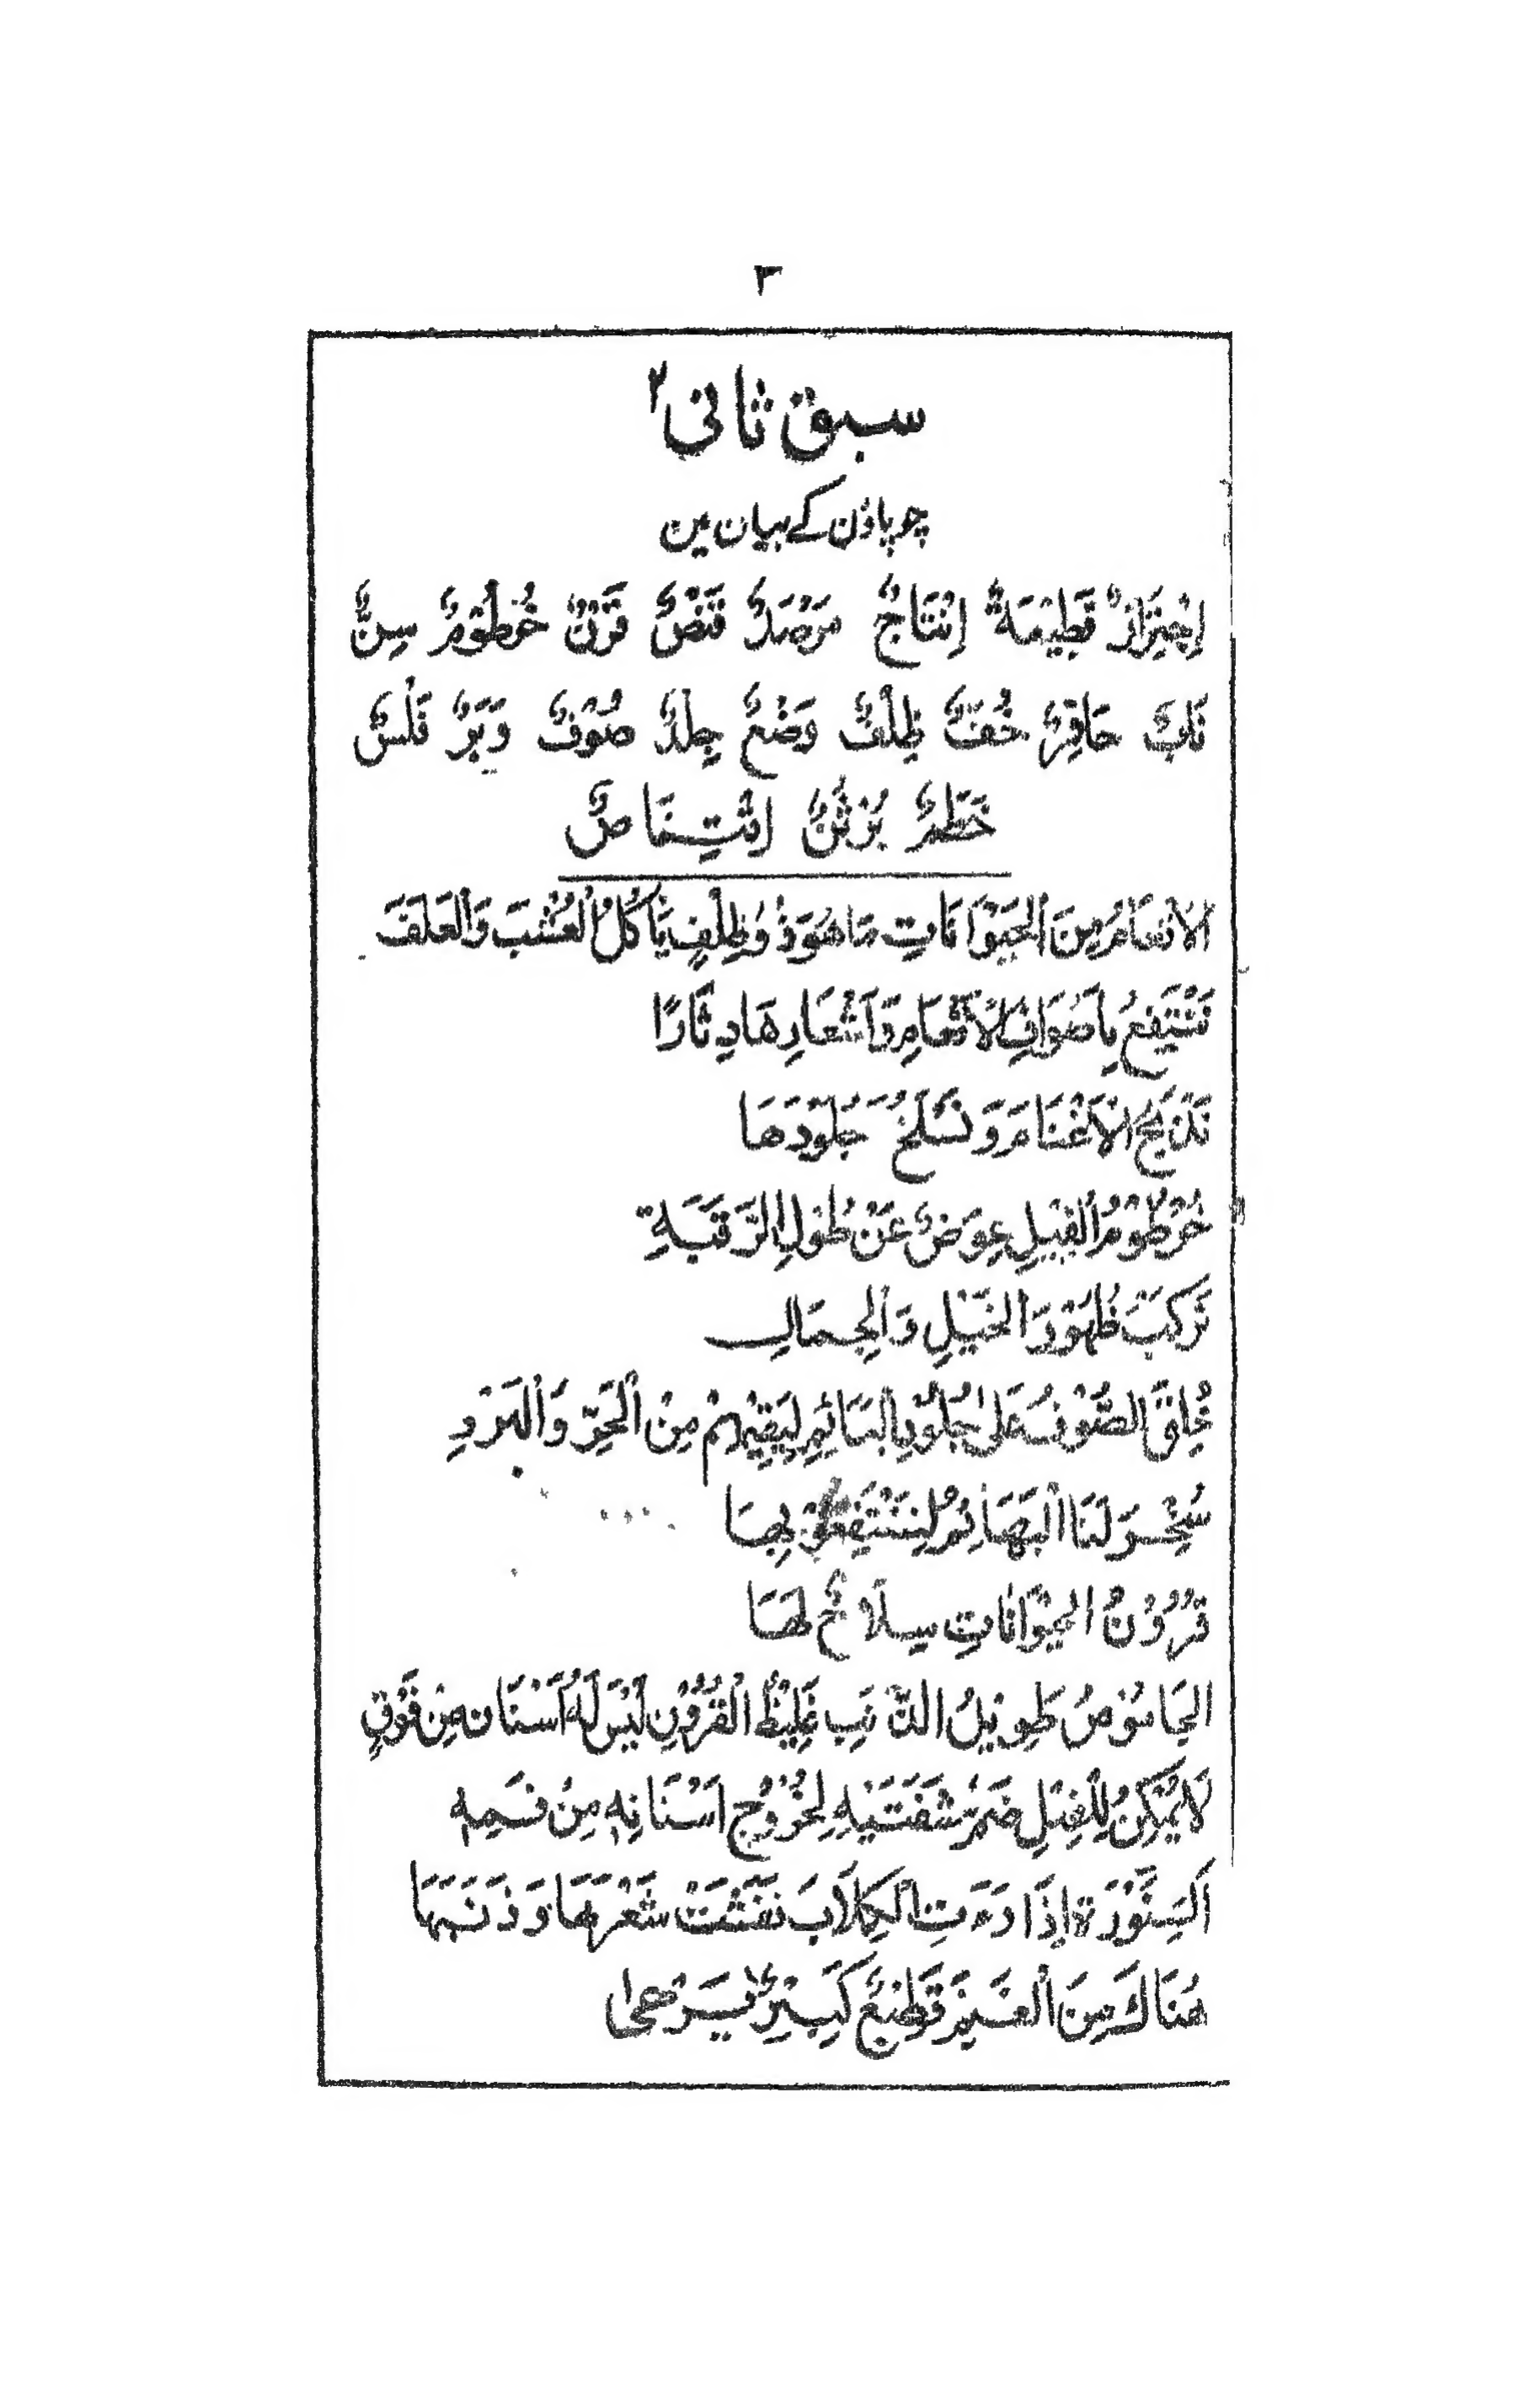 ٣
سبق ثانی ٢
چوپاؤن کے بیان مین
اِجْتِرَارٌ قَطِيْعَةٌ اِنْتَاجٌ مَرْصَدٌ قَنْصٌ قَرْنٌ خُرْطُوْمٌ سِنٌّ
نَابٌ حَافِرٌ خُفٌّ ظِلْفٌ وَضْعٌ جِلْدٌ صُوْفٌ وَبَرٌ فَلْسٌ
خَطْمٌ بُرْثُنٌ اِقْتِنَاصٌ
الْاَنْعَامُ مِنَ الْحَيْوَانَاتِ مَا هُوَ ذُوْظِلْفٍ يَأْكُلُ الْعُشْبَ وَالْعَلَفَ
نَنْتَفِعُ بِاَصْوَافِ الْاَنْعَامِ وَاَشْعَارِهَا دِثَارًا
نَذْبَحُ الْاَغْنَامَ وَنَسْلَخُ جُلُوْدَهَا
خُرْطُوْمُ الْفِيْلِ عِوَضٌ عَنْ طُوْلِ الرَّقَبَةِ
نَرْكَبُ ظُهُوْرَ الْخَيْلِ وَالْجِمَالِ
خُلِقَ الصُّوْفُ عَلٰى جُلُوْدِ الْبَهَائِمِ لِيَقِيْهِمْ مِنَ الْحَرِّ وَالْبَرْدِ
سُخِّرَ لَنَا الْبَهَائِمُ لِنَنْتَفِعَ بِهَا
قُرُوْنُ الْحَيْوَانَاتِ سِلَاحٌ لَهَا
الْجَامُوْسُ طَوِيْلُ الذَّنَبِ غَلِيْظُ الْقُرُوْنِ لَيْسَ لَهُ اَسْنَانٌ مِنْ فَوْقٍ
لَا يُمْكِنُ لِلْفِيْلِ ضَمُّ شَفَتَيْهِ لِخُرُوْجِ اَسْنَانِهٖ مِنْ فَمِهٖ
اَلسِّنَّوْرَةُ اِذَا رَءَتِ الْكِلَابَ نَفَشَتْ شَعْرَهَا وَذَنَبَهَا
هُنَاكَ مِنَ الْغَنَمِ قَطِيْعٌ كَبِيْرٌ يَرْعٰى